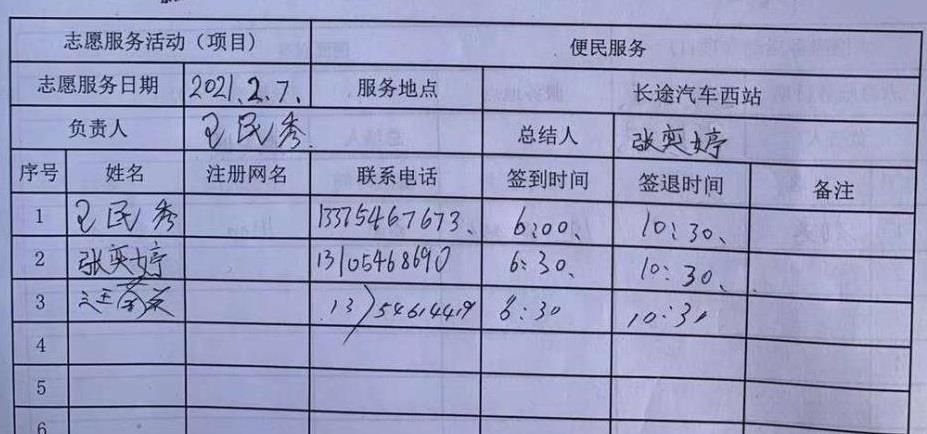 志愿服务活动（项目） 便民服务
志愿服务日期 2021.2.7. 服务地点 长途汽车西站
负责人 王民秀. 总结人 张奕婷
序号 姓名 注册网名 联系电话 签到时间 签退时间 备注
1 王民秀 13375467673、 6:00、 10:30、
2 张奕婷 13105468690 6:30、 10:30、
3 6:30 10:30
4
5
6